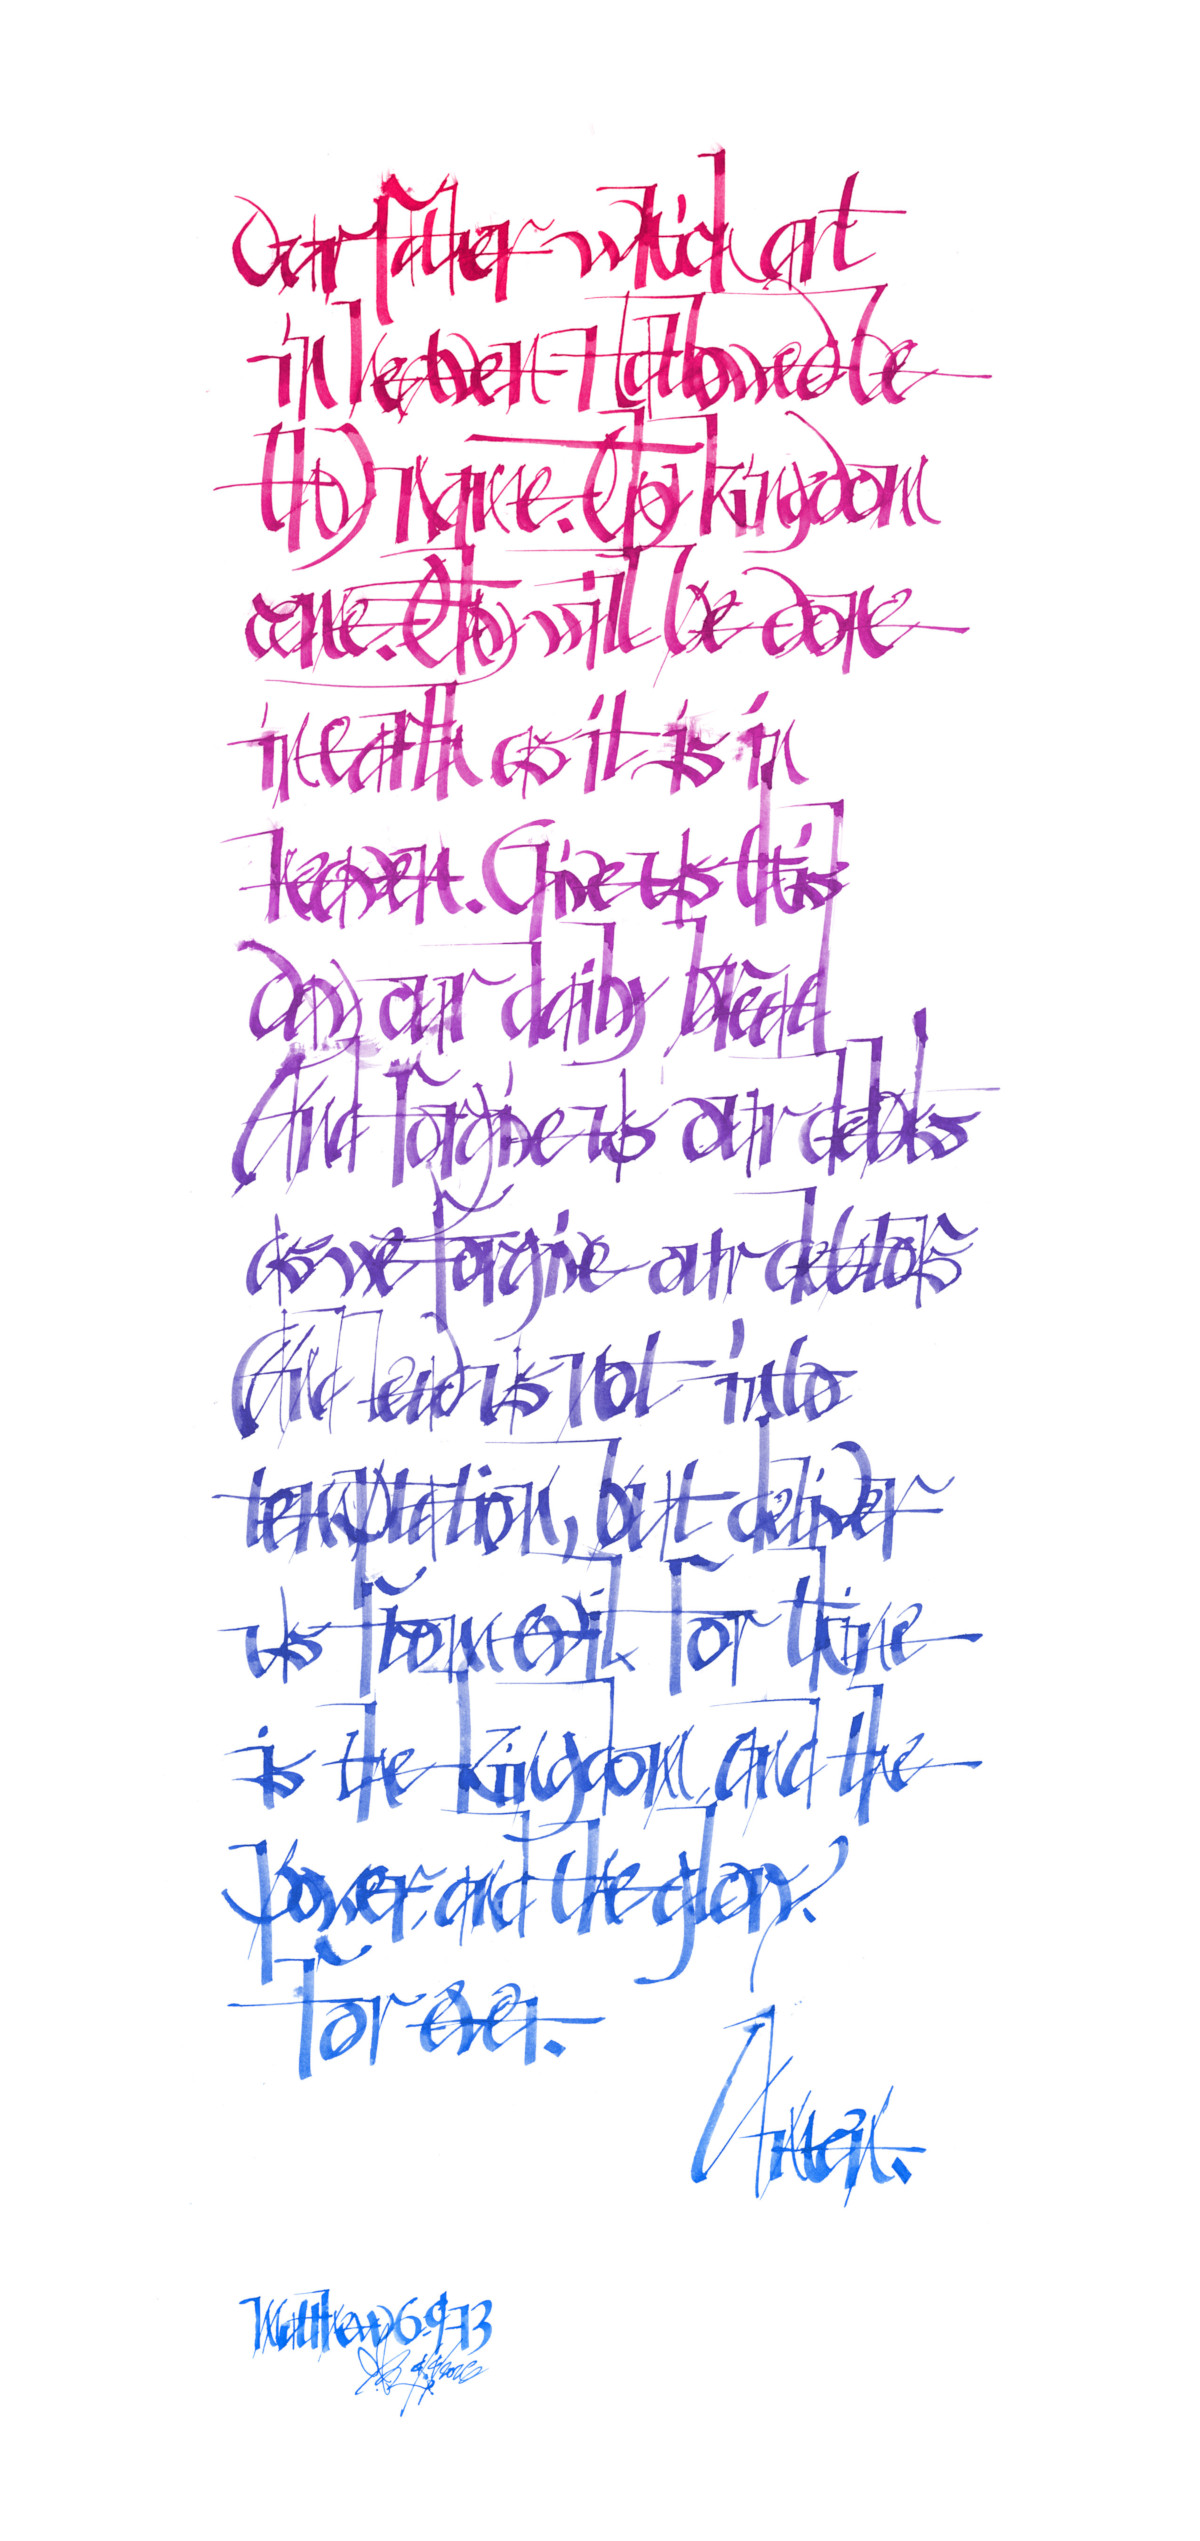 Our father which art
in heaven Hallowed be
thy name. Thy kingdom
come. Thy will be done
in earth as it is in
heaven. Give us this
day our daily bread
And forgive us our debts
as we forgive our debtors
And lead us not into
temptation, but deliver
us from evil. For thine
is the kingdom, and the
power, and the glory,
for ever.
Amen.
Matthew 6:9-13